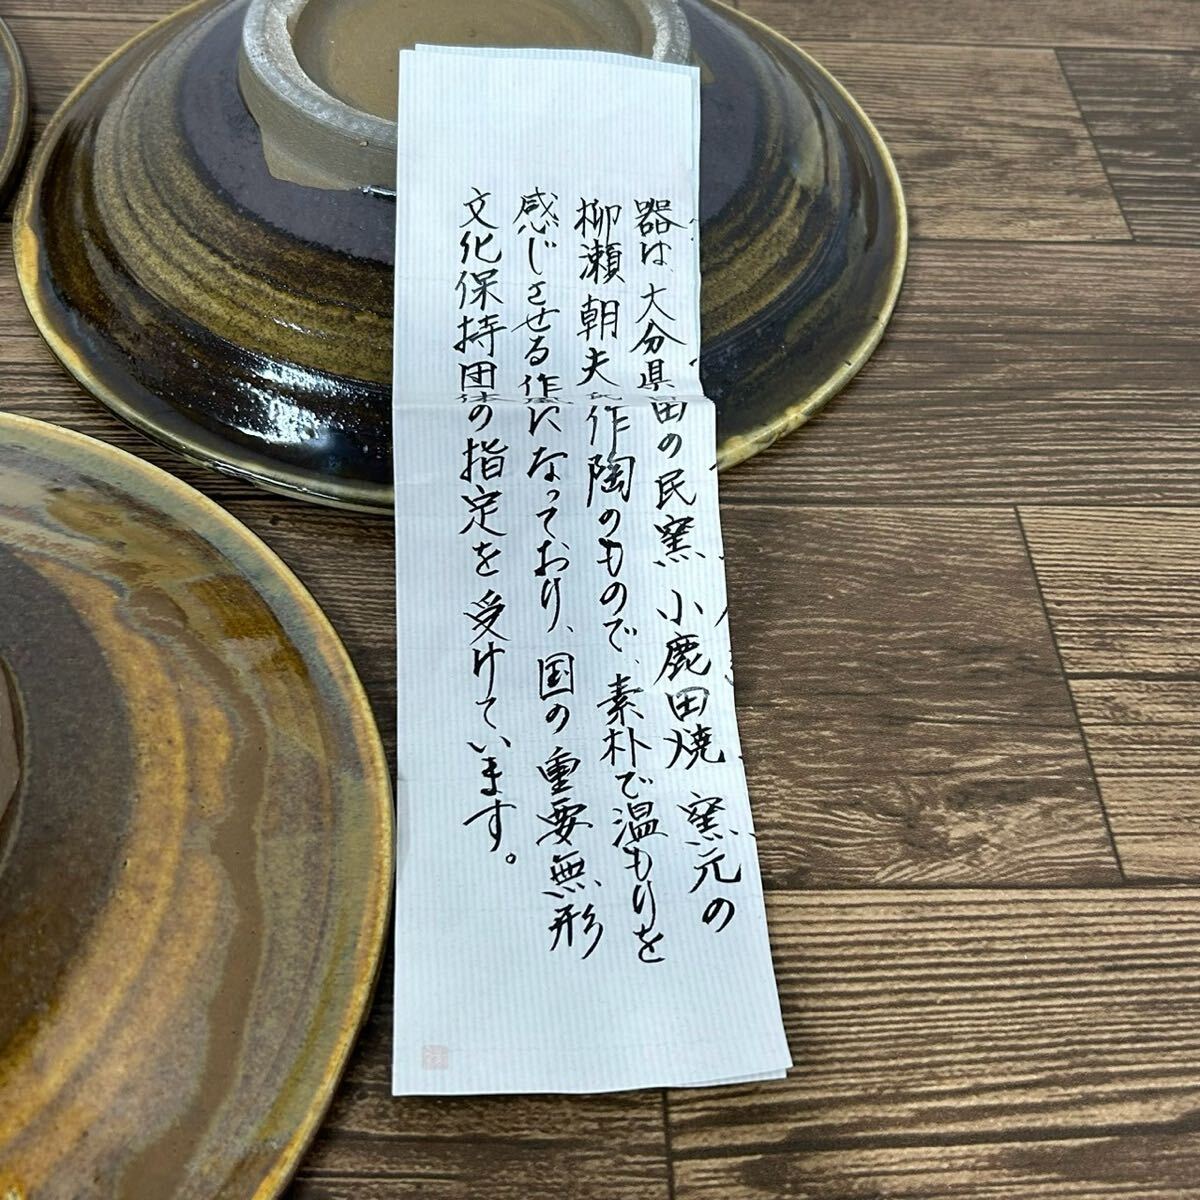 器は、大分県田の民窯 小鹿田焼 窯元の
柳瀬朝夫氏作陶のもので、素朴で温もりを
感じさせる作風になっており、国の重要無形
文化保持団体の指定を受けています。